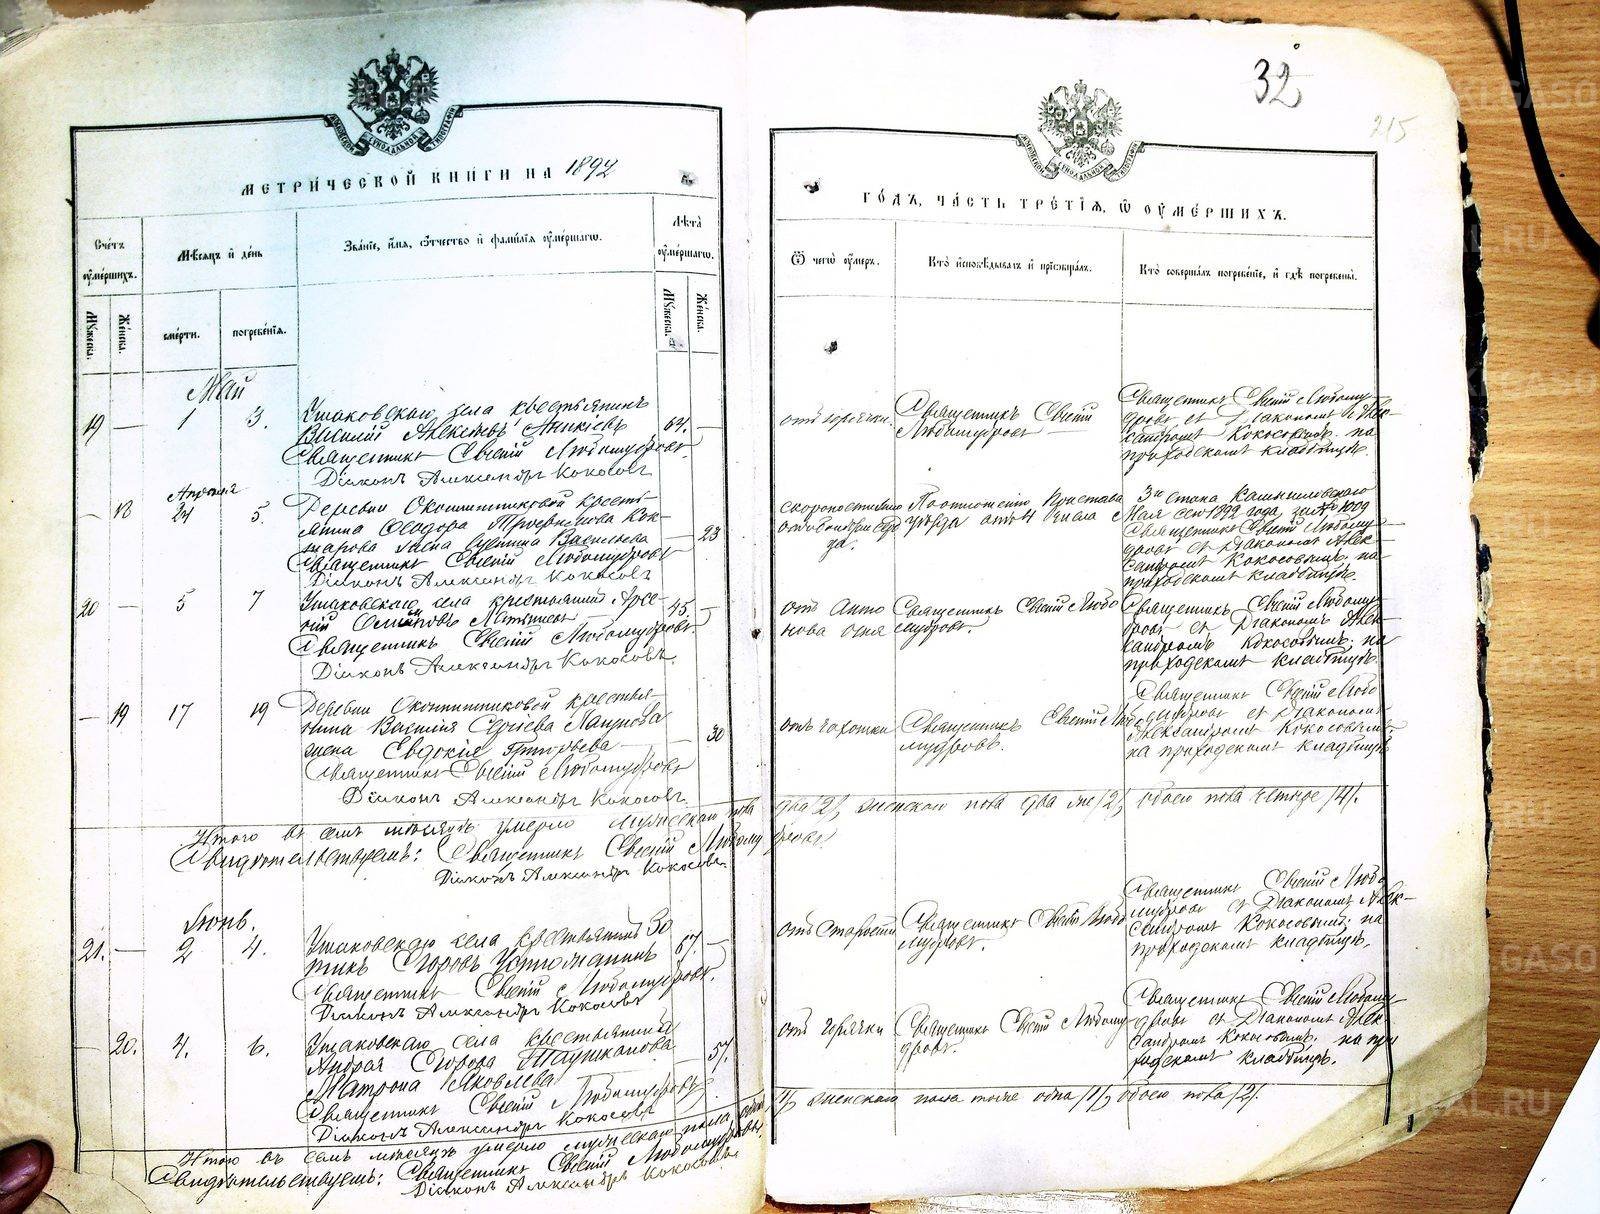 32
215
МЕТРИЧЕСКОЙ КНИГИ НА 1892
ГОДЪ, ЧАСТЬ ТРЕТІЯ, Ѿ ОУМЕРШИХЪ.
Счетъ оумершихъ.
Мѣсяцъ и день
Званіе, имя, ѻтчество и фамилія оумершагѡ.
Лѣта оумершагѡ.
Ѿ чегѡ оумеръ.
Кто исповѣдывалъ и пріобщалъ.
Кто совершалъ погребеніе, и гдѣ погребены.
Мужеска.
Женска.
смерти.
погребенія.
Мужеска.
Женска.
Май
19 — 1 3.
Ушаковскаго села крестьянинъ
Василій Алексѣевъ Аникіевъ
64. —
Священникъ Евгеній Любомудровъ.
Діаконъ Александръ Кокосовъ
отъ горячки
Священникъ Евгеній
Любомудровъ
Священникъ Евгеній Любому-
дровъ съ Діакономъ Алек-
сандромъ Кокосовымъ на
приходскомъ кладбищѣ.
Апрѣля
— 18 24 5.
Деревни
крестьянина Ѳеодора
жена Васильева
— 23
Священникъ Евгеній Любомудровъ
Діаконъ Александръ Кокосовъ
скоропостижно
По отношенію Пристава
3го стана Камышловскаго
уѣзда отъ 4 числа
Мая сего 1892 года за № 1009
Священникъ Евгеній Любому-
дровъ съ Діакономъ Алек-
сандромъ Кокосовымъ на
приходскомъ кладбищѣ.
20 — 5 7
Ушаковскаго села крестьянинъ Арсе-
ній
45 —
Священникъ Евгеній Любомудровъ.
Діаконъ Александръ Кокосовъ.
отъ Анто
нова огня
Священникъ Евгеній Любо
мудровъ.
Священникъ Евгеній Любому-
дровъ съ Діакономъ Алек-
сандромъ Кокосовымъ на
приходскомъ кладбищѣ.
— 19 17 19
Деревни крестья-
нина Василія Сергѣева
жена Евдокія Григорьева
30
Священникъ Евгеній Любомудровъ
Діаконъ Александръ Кокосовъ.
отъ чахотки
Священникъ Евгеній Любо
мудровъ.
Священникъ Евгеній Любо
мудровъ съ Діакономъ
Александромъ Кокосовымъ
на приходскомъ кладбищѣ
Итого въ семъ мѣсяцѣ умерло мужескаго пола два /2/, женскаго пола два же /2/, обоего пола четыре /4/.
Свидѣтельствуемъ: Священникъ Евгеній Любомудровъ
Діаконъ Александръ Кокосовъ.
Іюнь.
21. — 2 4.
Ушаковскаго села крестьянинъ Зо
тикъ Егоровъ
67. —
Священникъ Евгеній Любомудровъ.
Діаконъ Александръ Кокосовъ
отъ старости
Священникъ Евгеній Любо
мудровъ.
Священникъ Евгеній Любо
мудровъ съ Діакономъ Алек-
сандромъ Кокосовымъ на
приходскомъ кладбищѣ.
— 20. 4. 6.
Ушаковскаго села крестьянина
Андрея Егорова
Матрона Яковлева
— 57.
Священникъ Евгеній Любомудровъ.
Діаконъ Александръ Кокосовъ
отъ горячки
Священникъ Евгеній Любому
дровъ.
Священникъ Евгеній Любому-
дровъ съ Діакономъ Алек-
сандромъ Кокосовымъ на при
ходскомъ кладбищѣ.
Итого въ семъ мѣсяцѣ умерло мужескаго пола одинъ /1/, женскаго пола тоже одна /1/, обоего пола /2/.
Свидѣтельствуемъ: Священникъ Евгеній Любомудровъ.
Діаконъ Александръ Кокосовъ.